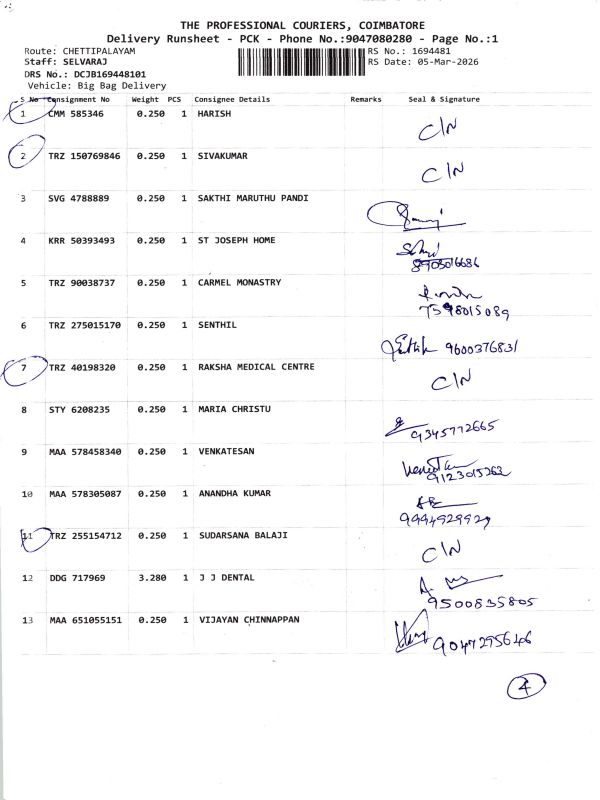 THE PROFESSIONAL COURIERS, COIMBATORE
Delivery Runsheet - PCK - Phone No.:9047080280 - Page No.:1
Route: CHETTIPALAYAM RS No.: 1694481
Staff: SELVARAJ RS Date: 05-Mar-2026
DRS No.: DCJB169448101
Vehicle: Big Bag Delivery
S No Consignment No Weight PCS Consignee Details Remarks Seal & Signature
1 CMM 585346 0.250 1 HARISH
C/N
2 TRZ 150769846 0.250 1 SIVAKUMAR
C/N
3 SVG 4788889 0.250 1 SAKTHI MARUTHU PANDI
4 KRR 50393493 0.250 1 ST JOSEPH HOME
5 TRZ 90038737 0.250 1 CARMEL MONASTRY
7598015089
6 TRZ 275015170 0.250 1 SENTHIL
9600376831
7 TRZ 40198320 0.250 1 RAKSHA MEDICAL CENTRE
C/N
8 STY 6208235 0.250 1 MARIA CHRISTU
9345772665
9 MAA 578458340 0.250 1 VENKATESAN
9123015263
10 MAA 578305087 0.250 1 ANANDHA KUMAR
9994929929
11 TRZ 255154712 0.250 1 SUDARSANA BALAJI
C/N
12 DDG 717969 3.280 1 J J DENTAL
9500835805
13 MAA 651055151 0.250 1 VIJAYAN CHINNAPPAN
9047295646
4